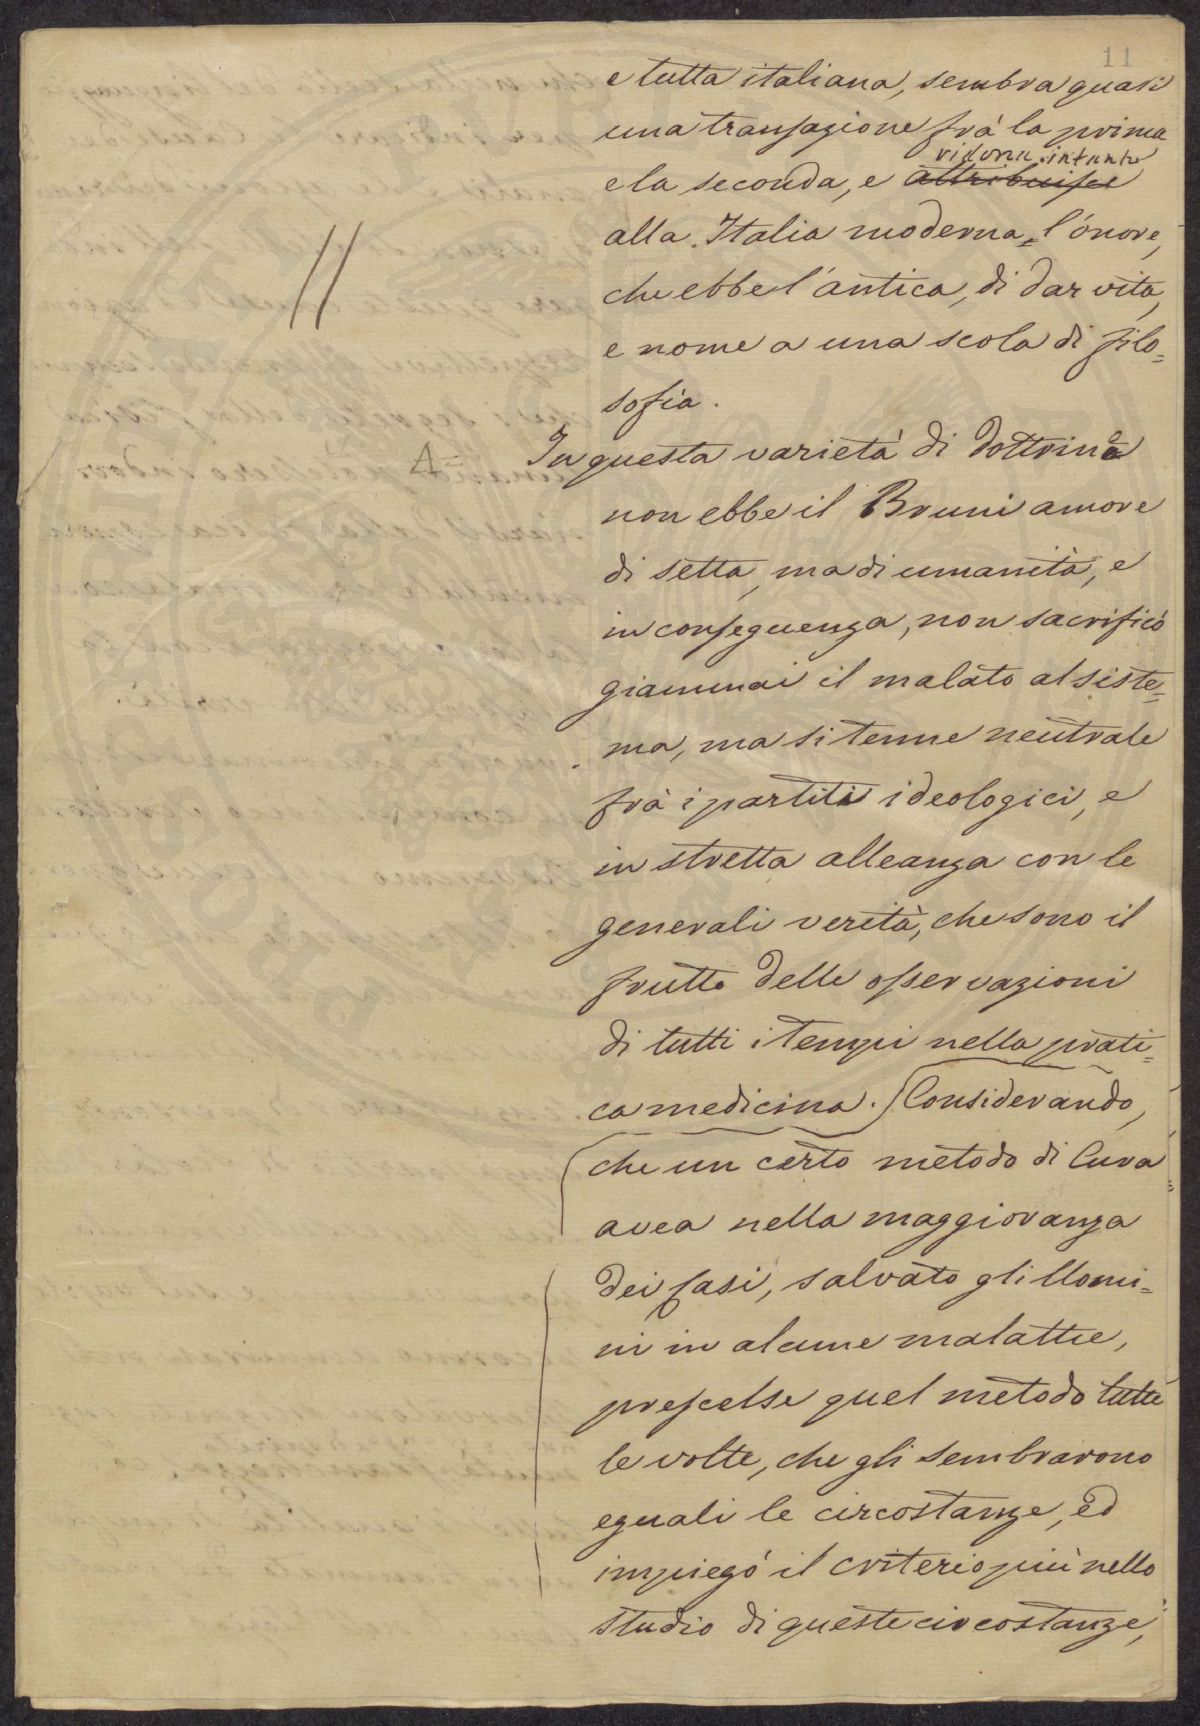 11
e tutta italiana, sembra quasi
una transazione frà la prima
ridona intanto
e la seconda, e attribuisce
alla Italia moderna, l'onore,
che ebbe l'antica, di dar vita,
e nome a una scola di filo=
sofia.
A= In questa varietà di dottrine
non ebbe il Bruni amore
di setta, ma di umanità, e
in conseguenza, non sacrificò
giammai il malato al siste=
ma, ma si tenne neutrale
frà i partiti ideologici, e
in stretta alleanza con le
generali verità, che sono il
frutto delle osservazioni
di tutti i tempi nella prati=
ca medicina. Considerando,
che un certo metodo di Cura
avea nella maggioranza
dei Casi, salvato gli Uomi=
ni in alcune malattie,
prescelse quel metodo tutte
le volte, che gli sembrarono
eguali le circostanze, ed
impiegò il criterio più nello
studio di queste circostanze,